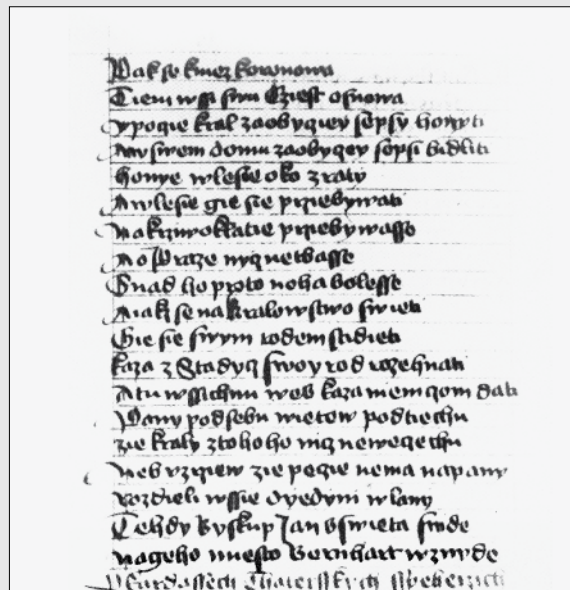 Pak se knez korunowa
Tiem wssi swu Cziest osnowa
ypogie kral zaobyqiey sepsy honyti
Aniswem domu zaobyqey sepsi bidliti
honye wlesie oko zraty
Awlesie gie sie prziebywati
Nakrziwoklatie prziebywasse
Ao Praze nyqnetbasse
Snad ho proto noha bolesse
Ajak se nakralowstwo swieti
Gie sie swym rodem stidieti
kaza z Stadycz swoy rod rozehnati
Atu wssichnu wes kaza niemqom dati
Pany podsebu wietow podtiechu
zie kraly ztohoho nicz newegechu
Neb uzrziew zie pogie nema napany
rozdieli wssie dyedyni wlany
Tehdy Byskup Jan Bswieta snide
nageho miesto Bernhart wznyde